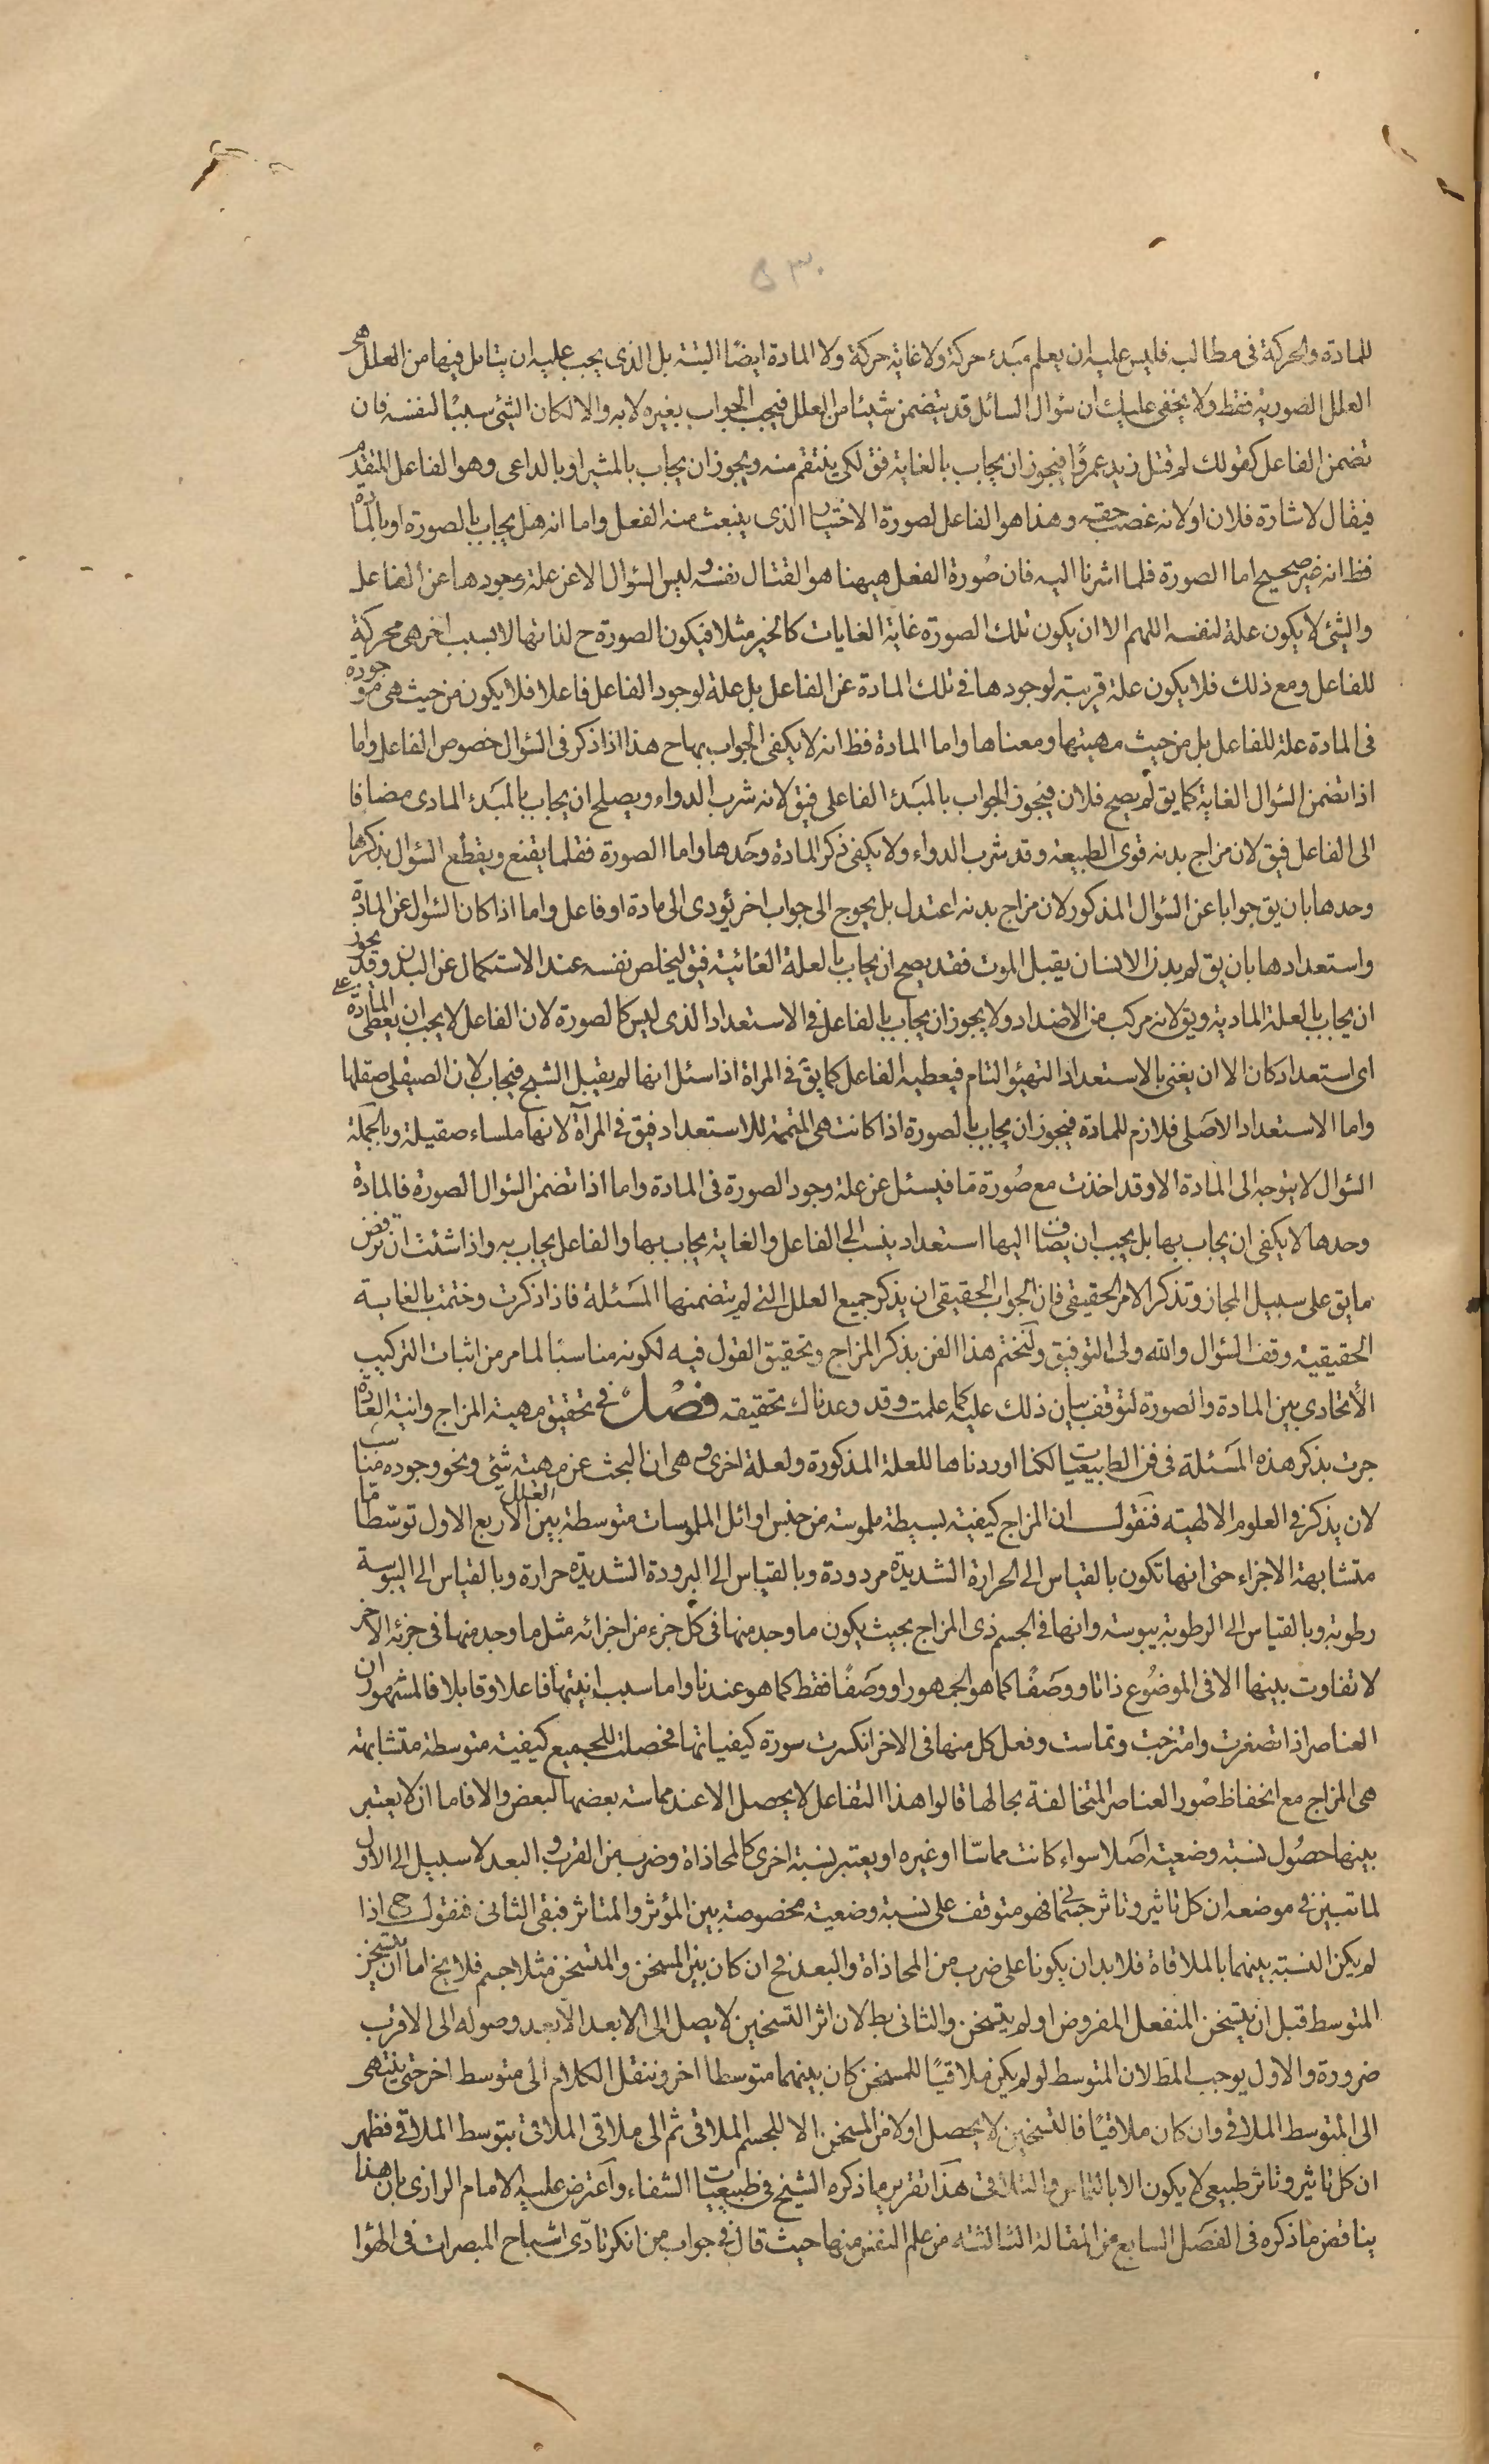 ٥٣٠
للمادة والحركة فى مطالب فليس عليه ان يعلم مبدء حركة ولا غاية حركة ولا المادة ايضًا البتة بل الذى يجب عليه ان يتامل فيها من العلل هى
العلل الصورية فقط ولا يخفى عليك ان سؤال السائل قد يتضمن شيئا من العلل فيجب الجواب بغيره لا به والا لكان الشئ سببًا لنفسه فان
تضمن الفاعل كقولك لم قتل زيد عمروًا فيجوز ان يجاب بالغاية فق لكى ينتقم منه ويجوز ان يجاب بالمشير او بالداعى وهو الفاعل المتقدم
فيقال لاشارة فلان او لانه غصب حقه وهذا هو الفاعل لصورة الاختيار الذى ينبعث منه الفعل واما انه هل يجاب بالصورة او بالمادة
فظ انه غير صحيح اما الصورة فلما اشرنا اليه فان صُورة الفعل هيهنا هو القتال نفسه وليس السؤال الا عن علة وجودها عن الفاعل
والشئ لا يكون علة لنفسه اللهم الا ان يكون تلك الصورة غاية الغايات كالخير مثلا فيكون الصورة ح لذاتها لا بسبب اخر هى محركة
للفاعل ومع ذلك فلا يكون علة قريبة لوجودها فى تلك المادة عن الفاعل بل علة لوجود الفاعل فاعلا فلا يكون من حيث هى موجودة
فى المادة علة للفاعل بل من حيث مهيتها ومعناها واما المادة فظ انه لا يكفى الجواب بها ح هذا اذا ذكر فى السؤال خصوص الفاعل واما
اذا تضمن السؤال الغاية كما يق لم يصح فلان فيجوز الجواب بالمبَدء الفاعلى فيق لانه شرب الدواء ويصلح ان يجاب بالمبَدء المادى مضافا
الى الفاعل فيق لان مزاج بدنه قوى الطبيعة وقد شرب الدواء ولا يكفى ذكر المادة وحَدها واما الصورة فقلما يقنع ويقطع السؤال بذكرها
وحدها بان يق جوابا عن السؤال المذكور لان مزاج بدنه اعتدل بل يحوج الى جواب اخر يؤدى الى مادة او فاعل واما اذا كان السؤال عن المادة
واستعدادها بان يق لم بدن الانسان يقبل الموت فقد يصح ان يجاب بالعلة الغائية فيق ليخلص نفسه عند الاستكمال عن البدن وقد يجوز
ان يجاب بالعلة المادية ويق لانه مركب من الاضداد ولا يجوز ان يجاب بالفاعل فى الاستعداد الذى ليس كالصورة لان الفاعل لا يجب ان يعطى المادة
اى استعداد كان الا ان يغنى بالاستعداد التهيؤ التام فيعطيه الفاعل كما يق فى المراة اذا سئل انها لم يقبل الشبح فيجاب لان الصيقلى صقلها
واما الاستعداد الاصَلى فلازم للمادة فيجوز ان يجاب بالصورة اذا كانت هى المتممة للاستعداد فيق فى المرآة لانها ملساء صقيلة وبالجملة
السئوال لا يتوجه الى المادة الا وقد اخذت مع صُورة مّا فيسئل عن علة وجود الصورة فى المادة واما اذا تضمن السئوال الصورة فالمادة
وحدها لا يكفى ان يجاب بها بل يجب ان يضاف اليها استعداد ينسب الى الفاعل والغاية يجاب بها والفاعل يجاب به واذا شئت ان ترفض
ما يق على سبيل المجاز وتذكر الامر الحقيقى فان الجواب الحقيقى ان يذكر جميع العلل التى لم يتضمنها المسَئلة فاذا ذكرت وختمت بالغاية
الحقيقية وقف السؤال والله ولى التوفيق ولنختم هذا الفن بذكر المزاج وتحقيق القول فيه لكونه مناسبًا لما مر من اثبات التركيب
الأتحادى بين المادة والصورة لتوقف بيان ذلك عليه كما علمت وقد وعدناك تحقيقه فصْلٌ فى تحقيق مهية المزاج وانيته العادة
جرت بذكر هذه المسَئلة فى فن الطبيعيات لكنا اوردناها للعلة المذكورة ولعلة اخرى وهى ان البحث عن مهية شئ ونحو وجوده مناسب
لان يذكر فى العلوم الالهية فنقول ان المزاج كيفية بسيطة ملموسة من جنس اوائل الملموسات متوسطة بين العلل الاربع الاول توسّطا مّا
متشابهة الاجزاء حتى انها تكون بالقياس الى الحرارة الشديدة مردودة وبالقياس الى البرودة الشديدة حرارة وبالقياس الى اليبوسة
رطوبة وبالقياس الى الرطوبة يبوسة وانها فى الجسم ذى المزاج بحيث يكون ما وجد منها فى كل جزء من اجزائه مثل ما وجد منها فى جزئه الاخر
لا تفاوت بينها الا فى الموضُوع ذاتا ووصَفًا كما هو الجمهور او وصَفًا فقط كما هو عندنا واما سبب انيتها فاعلا وقابلا فالمشهور ان
العناصر اذا تصغرت وامتزجت وتماست وفعل كل منها فى الاخر انكسرت سورة كيفياتها فحصلت للجميع كيفية متوسطة متشابهة
هى المزاج مع انحفاظ صُور العناصر المتخالفة بحالها قالوا هذا التفاعل لا يحصل الا عند مماسته بعضها لبعض والا فاما ان لا يعتبر
بينها حصُول نسبة وضعية اصَلا سواء كانت مماسّا او غيره او يعتبر نسبة اخرى كالمحاذاة وضرب من القرب والبعد لا سبيل الى الأول
لما تبين فى موضعه ان كل تاثير وتاثر جسمانى فهو متوقف على نسبة وضعية مخصوصة بين المؤثر والمتاثر فبقى الثانى فنقول ح اذا
لم يكن النسبة بينهما بالملاقاة فلا بد ان يكونا على ضرب من المحاذاة والبعد فح ان كان بين المسخن والمتسخن مثلا جسم فلا يخ اما ان يتسخن
المتوسط قبل ان يتسخن المنفعل المفروض او لم يتسخن والثانى بط لان اثر التسخين لا يصل الى الابعد الا بعد وصوله الى الاقرب
ضرورة والاول يوجب المط لان المتوسط لو لم يكن ملاقيًا للمسخن كان بينهما متوسطا اخر وننقل الكلام الى متوسط اخر حتى ينتهى
الى المتوسط الملاقى وان كان ملاقيًا فالتسخين لا يحصل اولا من المسخن الا للجسم الملاقى ثم الى ملاقى الملاقى بتوسط الملاقى فظهر
ان كل تاثير وتاثر طبيعى لا يكون الا بالتماس والتلاقى هَذا تقرير ما ذكره الشيخ فى طبيعيات الشفاء واَعترض عليه الامام الرازى بان هذا
يناقض ما ذكره فى الفصَل السابع من المقالة الثالثة من علم النفس منها حيث قال فى جواب من انكر تادّى اشباح المبصرات فى الهوا